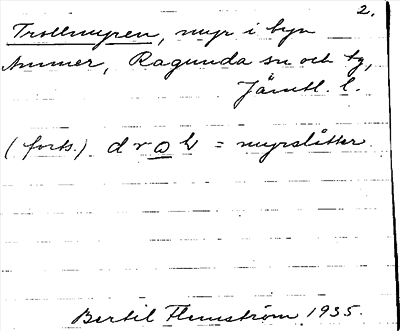 2.
Trollmyren, myr i byn
Ammer, Ragunda sn och tg,
Jämtl. l.
(forts.) d v = myrslåtter.
Bertil Flemström 1935.